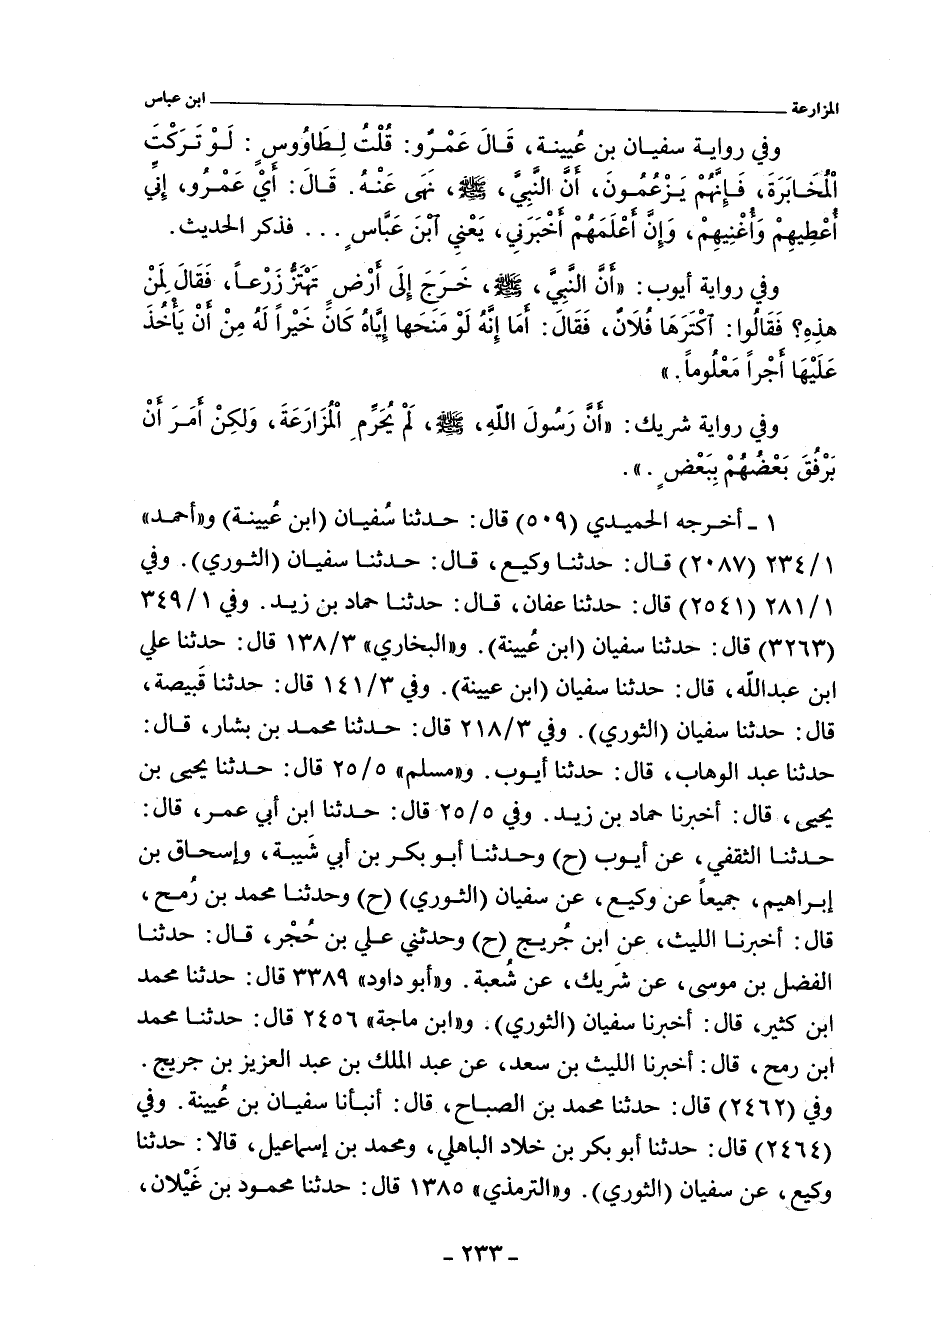 المزارعة ـــــــــــــــــــــــــــــــــــ ابن عباس
وفي رواية سفيان بن عُيينة، قَالَ عَمْرٌو: قُلْتُ لِطَاوُوسٍ: لَوْ تَرَكْتَ
ٱلْمُخَابَرَةَ، فَإِنَّهُمْ يَزْعُمُونَ، أَنَّ النَّبِيَّ، ﷺ، نَهَى عَنْهُ. قَالَ: أَيْ عَمْرُو، إِنِّي
أُعْطِيهِمْ وَأُغْنِيهِمْ، وَإِنَّ أَعْلَمَهُمْ أَخْبَرَنِي، يَعْنِي ٱبْنَ عَبَّاسٍ ... فذكر الحديث.
وفي رواية أيوب: «أَنَّ النَّبِيَّ، ﷺ، خَرَجَ إِلَى أَرْضٍ تَهْتَزُّ زَرْعاً، فَقَالَ لِمَنْ
هذِهِ؟ فَقَالُوا: ٱكْتَرَهَا فُلَانٌ، فَقَالَ: أَمَا إِنَّهُ لَوْ مَنَحَها إِيَّاهُ كَانَ خَيْراً لَهُ مِنْ أَنْ يَأْخُذَ
عَلَيْهَا أَجْراً مَعْلُوماً.»
وفي رواية شريك: «أَنَّ رَسُولَ اللهِ، ﷺ، لَمْ يُحَرِّمِ الْمُزَارَعَةَ، وَلكِنْ أَمَرَ أَنْ
يَرْفُقَ بَعْضُهُمْ بِبَعْضٍ.».
١ ـ أخرجه الحميدي (٥٠٩) قال: حدثنا سُفيان (ابن عُيينة) و«أحمد»
٢٣٤/١ (٢٠٨٧) قال: حدثنا وكيع، قال: حدثنا سفيان (الثوري). وفي
٢٨١/١ (٢٥٤١) قال: حدثنا عفان، قال: حدثنا حماد بن زيد. وفي ٣٤٩/١
(٣٢٦٣) قال: حدثنا سفيان (ابن عُيينة). و«البخاري» ١٣٨/٣ قال: حدثنا علي
ابن عبدالله، قال: حدثنا سفيان (ابن عيينة). وفي ١٤١/٣ قال: حدثنا قَبيصة،
قال: حدثنا سفيان (الثوري). وفي ٢١٨/٣ قال: حدثنا محمد بن بشار، قال:
حدثنا عبد الوهاب، قال: حدثنا أيوب. و«مسلم» ٢٥/٥ قال: حدثنا يحيى بن
يحيى، قال: أخبرنا حماد بن زيد. وفي ٢٥/٥ قال: حدثنا ابن أبي عمر، قال:
حدثنا الثقفي، عن أيوب (ح) وحدثنا أبو بكر بن أبي شَيبة، وإسحاق بن
إبراهيم، جميعاً عن وكيع، عن سفيان (الثوري) (ح) وحدثنا محمد بن رُمح،
قال: أخبرنا الليث، عن ابن جُريج (ح) وحدثني علي بن حُجْر، قال: حدثنا
الفضل بن موسى، عن شَريك، عن شُعبة. و«أبو داود» ٣٣٨٩ قال: حدثنا محمد
ابن كثير، قال: أخبرنا سفيان (الثوري). و«ابن ماجة» ٢٤٥٦ قال: حدثنا محمد
ابن رمح، قال: أخبرنا الليث بن سعد، عن عبد الملك بن عبد العزيز بن جريج.
وفي (٢٤٦٢) قال: حدثنا محمد بن الصباح، قال: أنبأنا سفيان بن عُيينة. وفي
(٢٤٦٤) قال: حدثنا أبو بكر بن خلاد الباهلي، ومحمد بن إسماعيل، قالا: حدثنا
وكيع، عن سفيان (الثوري). و«الترمذي» ١٣٨٥ قال: حدثنا محمود بن غَيْلان،
ـ ٢٣٣ ـ